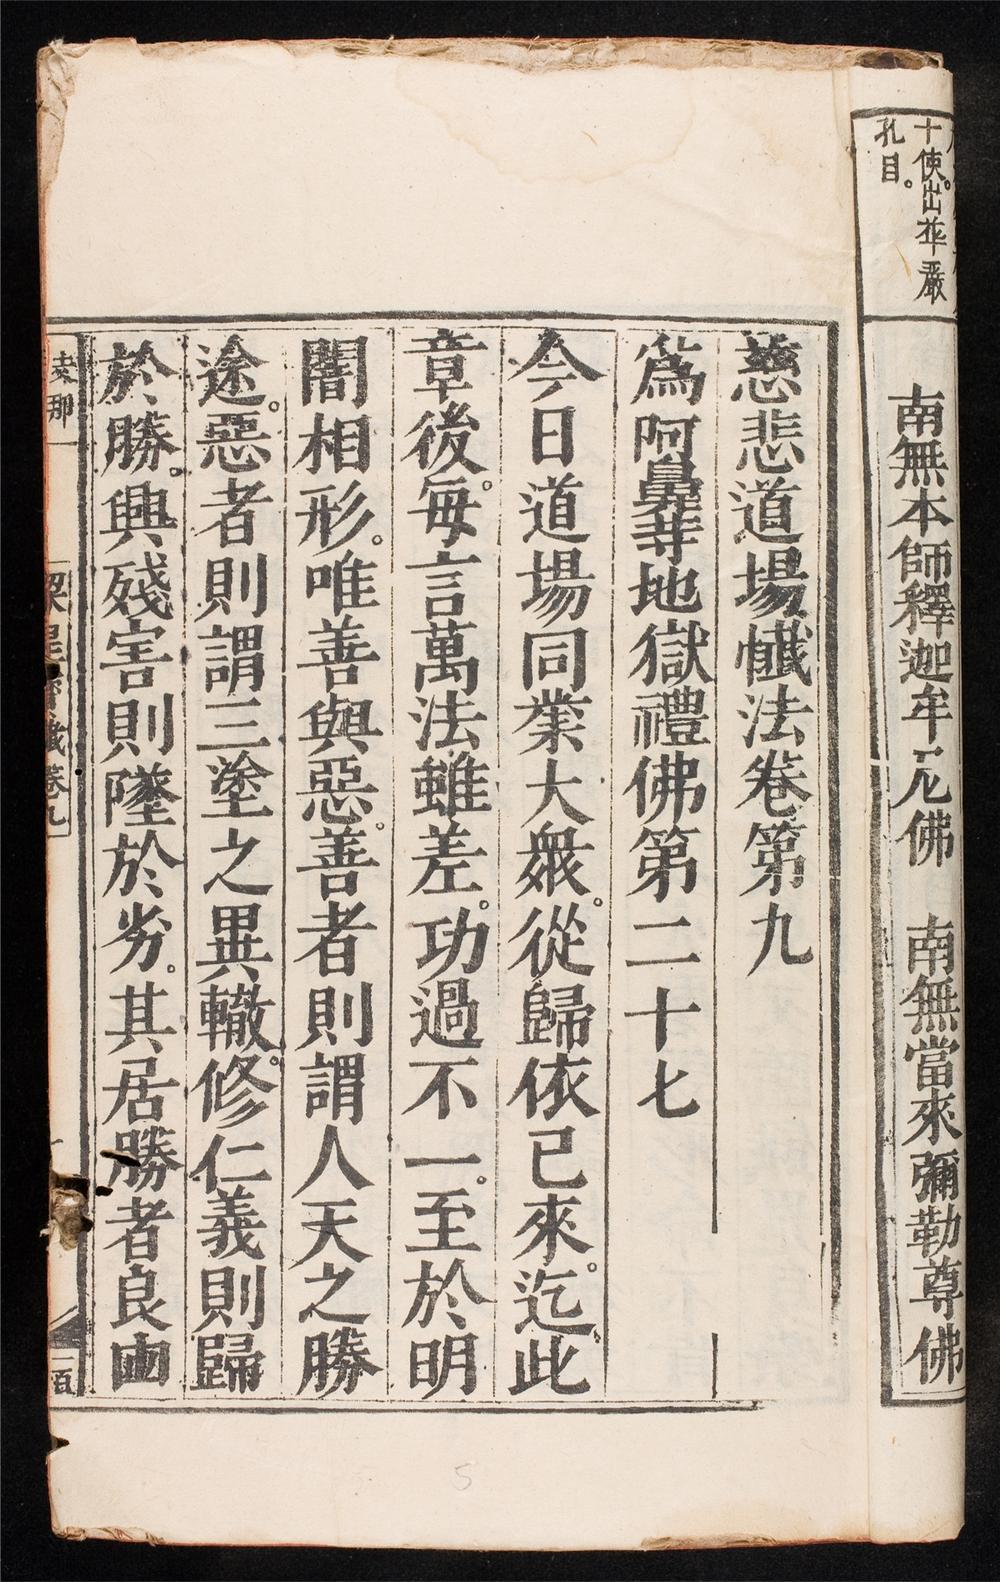 十使。出華嚴
孔目。
南無本師釋迦牟尼佛　南無當來彌勒尊佛
慈悲道場懺法卷第九
爲阿鼻等地獄禮佛第二十七
今日道場同業大衆。從歸依已來。迄此
章後。每言萬法雖差。功過不一。至於明
闇相形。唯善與惡。善者則謂人天之勝
途。惡者則謂三塗之異轍。修仁義則歸
於勝。興殘害則墜於劣。其居勝者良由
卷九